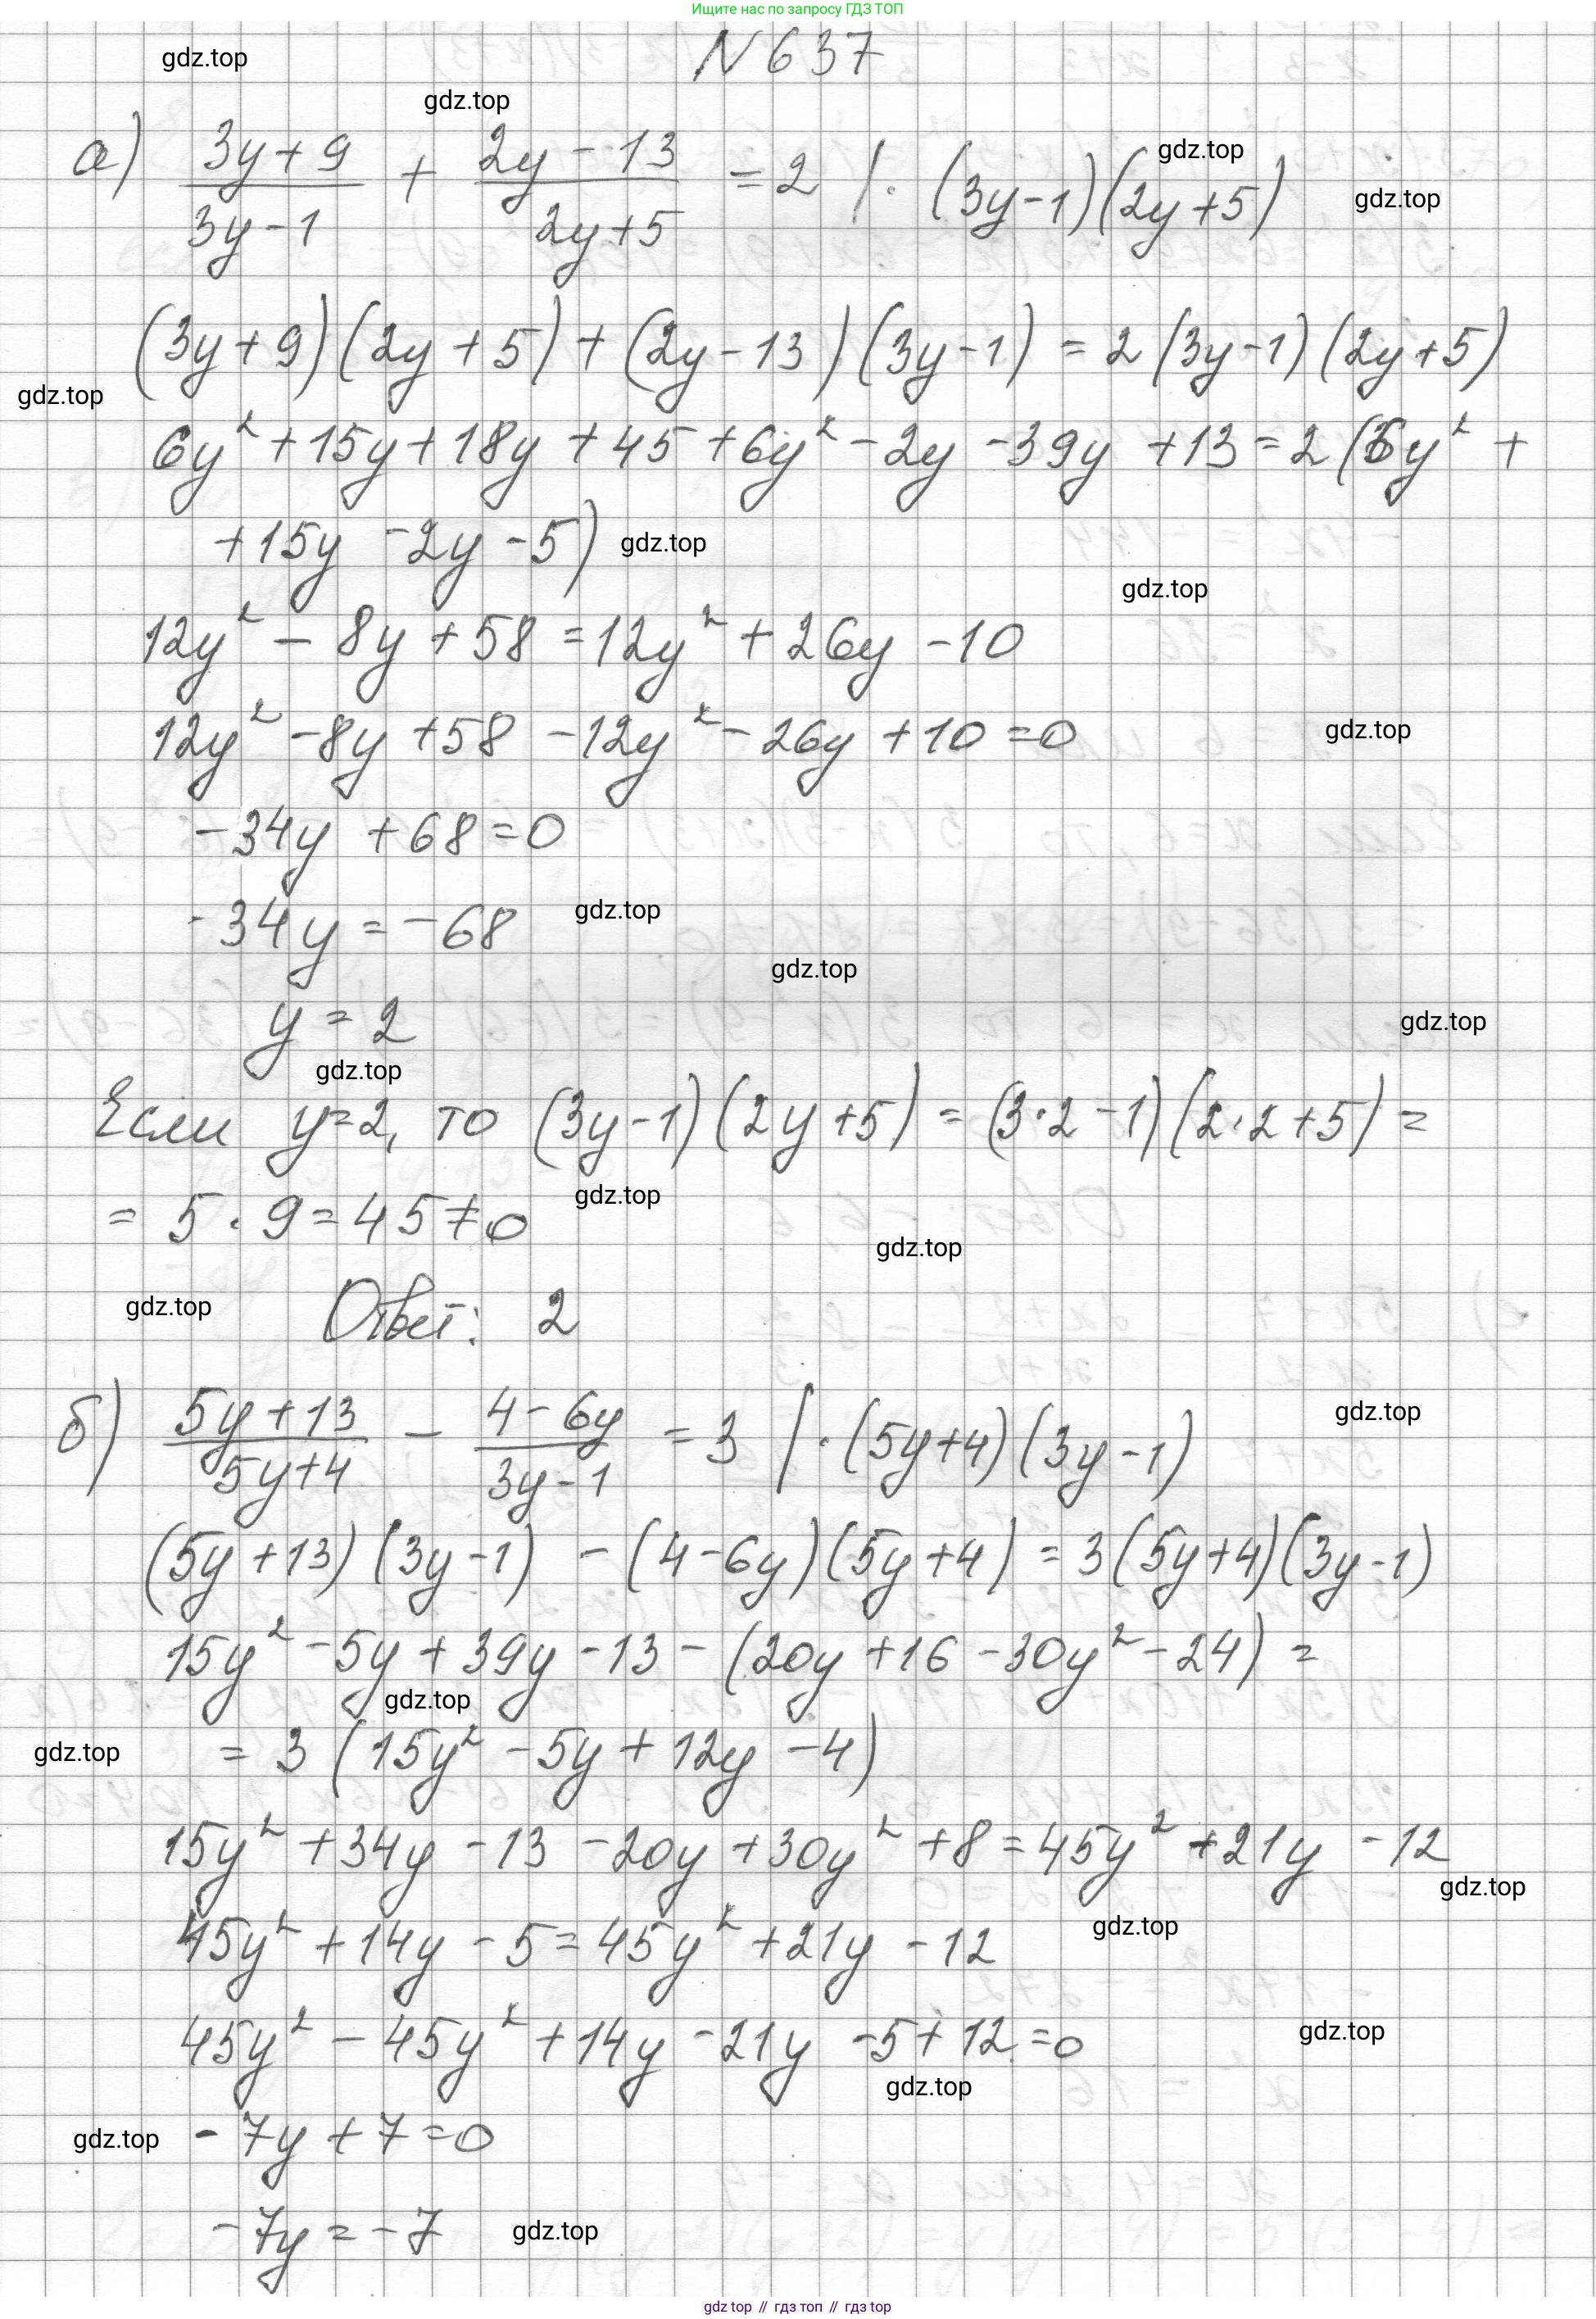 Ищите нас по запросу ГДЗ ТОП
N 637
gdz.top
gdz.top
а) (3y+9)/(3y-1) + (2y-13)/(2y+5) = 2 / · (3y-1)(2y+5)
gdz.top
gdz.top
(3y+9)(2y+5)+(2y-13)(3y-1) = 2(3y-1)(2y+5)
gdz.top
6y² + 15y + 18y + 45 + 6y² - 2y - 39y + 13 = 2(6y² +
+15y - 2y - 5)
gdz.top
gdz.top
12y² - 8y + 58 = 12y² + 26y - 10
12y² - 8y + 58 - 12y² - 26y + 10 = 0
gdz.top
-34y + 68 = 0
-34y = -68
gdz.top
gdz.top
y = 2
gdz.top
gdz.top
Если y=2, то (3y-1)(2y+5) = (3·2-1)(2·2+5) =
= 5 · 9 = 45 ≠ 0
gdz.top
gdz.top
gdz.top
Ответ: 2
б) (5y+13)/(5y+4) - (4-6y)/(3y-1) = 3 / · (5y+4)(3y-1)
gdz.top
(5y+13)(3y-1) - (4-6y)(5y+4) = 3(5y+4)(3y-1)
15y² - 5y + 39y - 13 - (20y + 16 - 30y² - 24) =
gdz.top
gdz.top
= 3(15y² - 5y + 12y - 4)
15y² + 34y - 13 - 20y + 30y² + 8 = 45y² + 21y - 12
gdz.top
gdz.top
45y² + 14y - 5 = 45y² + 21y - 12
45y² - 45y² + 14y - 21y - 5 + 12 = 0
gdz.top
gdz.top
gdz.top
-7y + 7 = 0
-7y = -7
gdz.top
gdz.top // гдз топ // гдз.top